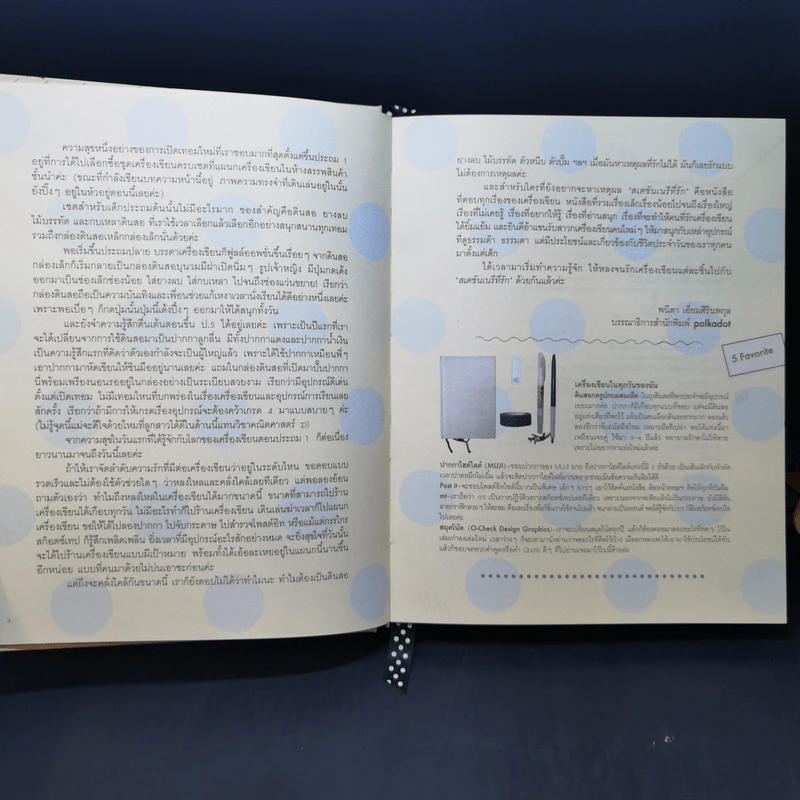 ความสุขหนึ่งอย่างของการเปิดเทอมใหม่ที่เราชอบมากที่สุดตั้งแต่ขึ้นประถม 1
อยู่ที่การได้ไปเลือกซื้อชุดเครื่องเขียนครบเซตที่แผนกเครื่องเขียนในห้างสรรพสินค้า
ชั้นนำค่ะ (ขณะที่กำลังเขียนบทความหน้านี้อยู่ ภาพความทรงจำที่เดินเล่นอยู่ในนั้น
ยังปิ๊งๆ อยู่ในหัวอยู่ตอนนี้เลยค่ะ)
เซตสำหรับเด็กประถมต้นนั้นไม่มีอะไรมาก ของสำคัญคือดินสอ ยางลบ
ไม้บรรทัด และกบเหลาดินสอ ที่เราใช้เวลาเลือกแล้วเลือกอีกอย่างสนุกสนานทุกเทอม
รวมถึงกล่องดินสอเหล็กกล่องเล็กนั่นด้วยค่ะ
พอเริ่มขึ้นประถมปลาย บรรดาเครื่องเขียนก็ฟูลออพชั่นขึ้นเรื่อยๆ จากดินสอ
กล่องเล็กก็เริ่มกลายเป็นกล่องดินสอบุนวมมีฝาเปิดนิ่มๆ รูปเจ้าหญิง มีปุ่มกดเด้ง
ออกมาเป็นช่องเล็กช่องน้อย ใส่ยางลบ ใส่กบเหลา ไปจนถึงช่องแว่นขยาย! เรียกว่า
กล่องดินสอถือเป็นความบันเทิงและเพื่อนช่วยแก้เหงาเวลานั่งเรียนได้ดีอย่างหนึ่งเลยค่ะ
เพราะพอเบื่อๆ ก็กดปุ่มนั้นปุ่มนี้เด้งปิ๊งๆ ออกมาให้ได้สนุกทั้งวัน
และยังจำความรู้สึกตื่นเต้นตอนขึ้น ป.5 ได้อยู่เลยค่ะ เพราะเป็นปีแรกที่เรา
จะได้เปลี่ยนจากการใช้ดินสอมาเป็นปากกาลูกลื่น มีทั้งปากกาแดงและปากกาน้ำเงิน
เป็นความรู้สึกแรกที่คิดว่าตัวเองกำลังจะเป็นผู้ใหญ่แล้ว เพราะได้ใช้ปากกาเหมือนพี่ๆ
เอาปากกามาหัดเขียนให้ชินมืออยู่นานเลยค่ะ แถมในกล่องดินสอที่เปิดมาปั๊บปากกา
นี่พร้อมเพรียงนอนรออยู่ในกล่องอย่างเป็นระเบียบสวยงาม เรียกว่ามีอุปกรณ์ดีเด่น
ตั้งแต่เปิดเทอม ไม่มีเทอมไหนที่บกพร่องในเรื่องเครื่องเขียนและอุปกรณ์การเรียนเลย
สักครั้ง เรียกว่าถ้ามีการให้เกรดเรื่องอุปกรณ์จะต้องคว้าเกรด 4 มาแบบสบายๆ ค่ะ
(ไม่รู้จุดนี้แม่จะดีใจด้วยไหมที่ลูกสาวได้ดีในด้านนี้แทนวิชาคณิตศาสตร์ :D)
จากความสุขในวันแรกที่ได้รู้จักกับโลกของเครื่องเขียนตอนประถม 1 ก็ต่อเนื่อง
ยาวนานมาจนถึงวันนี้เลยค่ะ
ถ้าให้เราจัดลำดับความรักที่มีต่อเครื่องเขียนว่าอยู่ในระดับไหน ขอตอบแบบ
รวดเร็วและไม่ต้องใช้ตัวช่วยใดๆ ว่าหลงใหลและคลั่งไคล้เลยทีเดียว แต่พอลองย้อน
ถามตัวเองว่า ทำไมถึงหลงใหลในเครื่องเขียนได้มากขนาดนี้ ขนาดที่สามารถไปร้าน
เครื่องเขียนได้เกือบทุกวัน ไม่มีอะไรทำก็ไปร้านเครื่องเขียน เดินเล่นฆ่าเวลาก็ไปแผนก
เครื่องเขียน ขอให้ได้ไปลองปากกา ไปจับกระดาษ ไปสำรวจโพสต์อิท หรือแม้แต่กรรไกร
สก็อตช์เทป ก็รู้สึกเพลิดเพลิน ยิ่งเวลาที่มีอุปกรณ์อะไรสักอย่างหมด จะยิ่งสุขใจที่วันนั้น
จะได้ไปร้านเครื่องเขียนแบบมีเป้าหมาย พร้อมทั้งได้เอ้อละเหยอยู่ในแผนกนี้นานขึ้น
อีกหน่อย แบบที่คนมาด้วยไม่บ่นเอาซะก่อนค่ะ
แต่ถึงจะคลั่งไคล้กันขนาดนี้ เราก็ยังตอบไม่ได้ว่าทำไมนะ ทำไมต้องเป็นดินสอ
4
ยางลบ ไม้บรรทัด ตัวหนีบ ตัวปั๊ม ฯลฯ เมื่อมันหาเหตุผลที่รักไม่ได้ มันก็เลยรักแบบ
ไม่ต้องการเหตุผลค่ะ
และสำหรับใครที่ยังอยากจะหาเหตุผล "สเตชันเนรีที่รัก" คือหนังสือ
ที่ตอบทุกเรื่องของเครื่องเขียน หนังสือที่รวมเรื่องเล็กเรื่องน้อยไปจนถึงเรื่องใหญ่
เรื่องที่ไม่เคยรู้ เรื่องที่อยากให้รู้ เรื่องที่อ่านสนุก เรื่องที่จะทำให้คนที่รักเครื่องเขียน
ได้ยิ้มแย้ม และยินดีอ้าแขนรับสาวกเครื่องเขียนคนใหม่ๆ ให้มาสนุกกับเหล่าอุปกรณ์
ที่ดูธรรมด๊า ธรรมดา แต่มีประโยชน์และเกี่ยวข้องกับชีวิตประจำวันของเราทุกคน
มาตั้งแต่เด็ก
ได้เวลามาเริ่มทำความรู้จัก ให้หลงจนรักเครื่องเขียนแต่ละชิ้นไปกับ
"สเตชันเนรีที่รัก" ด้วยกันแล้วค่ะ
พนิดา เอี่ยมศิรินพกุล
บรรณาธิการสำนักพิมพ์ polkadot
5 Favorite
เครื่องเขียนในทุกวันของฉัน
ปากกาไฮต์ไลต์ (MUJI)
Post it
mt
สมุดโน้ต (O-Check Design Graphics)